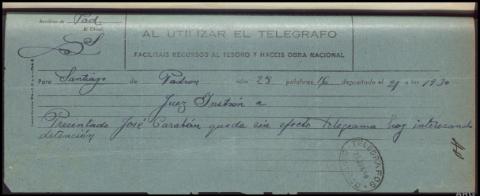 Pad
El Oficial,
AL UTILIZAR EL TELEGRAFO
FACILITAIS RECURSOS AL TESORO Y HACEIS OBRA NACIONAL
Para Santiago de Padron núm 28 palabras 16 depositado el 21 a las 19'30
Juez Instrón a
Presentado José Carabán queda sin efecto telegrama hoy interesando
detención
TELEGRAFOS